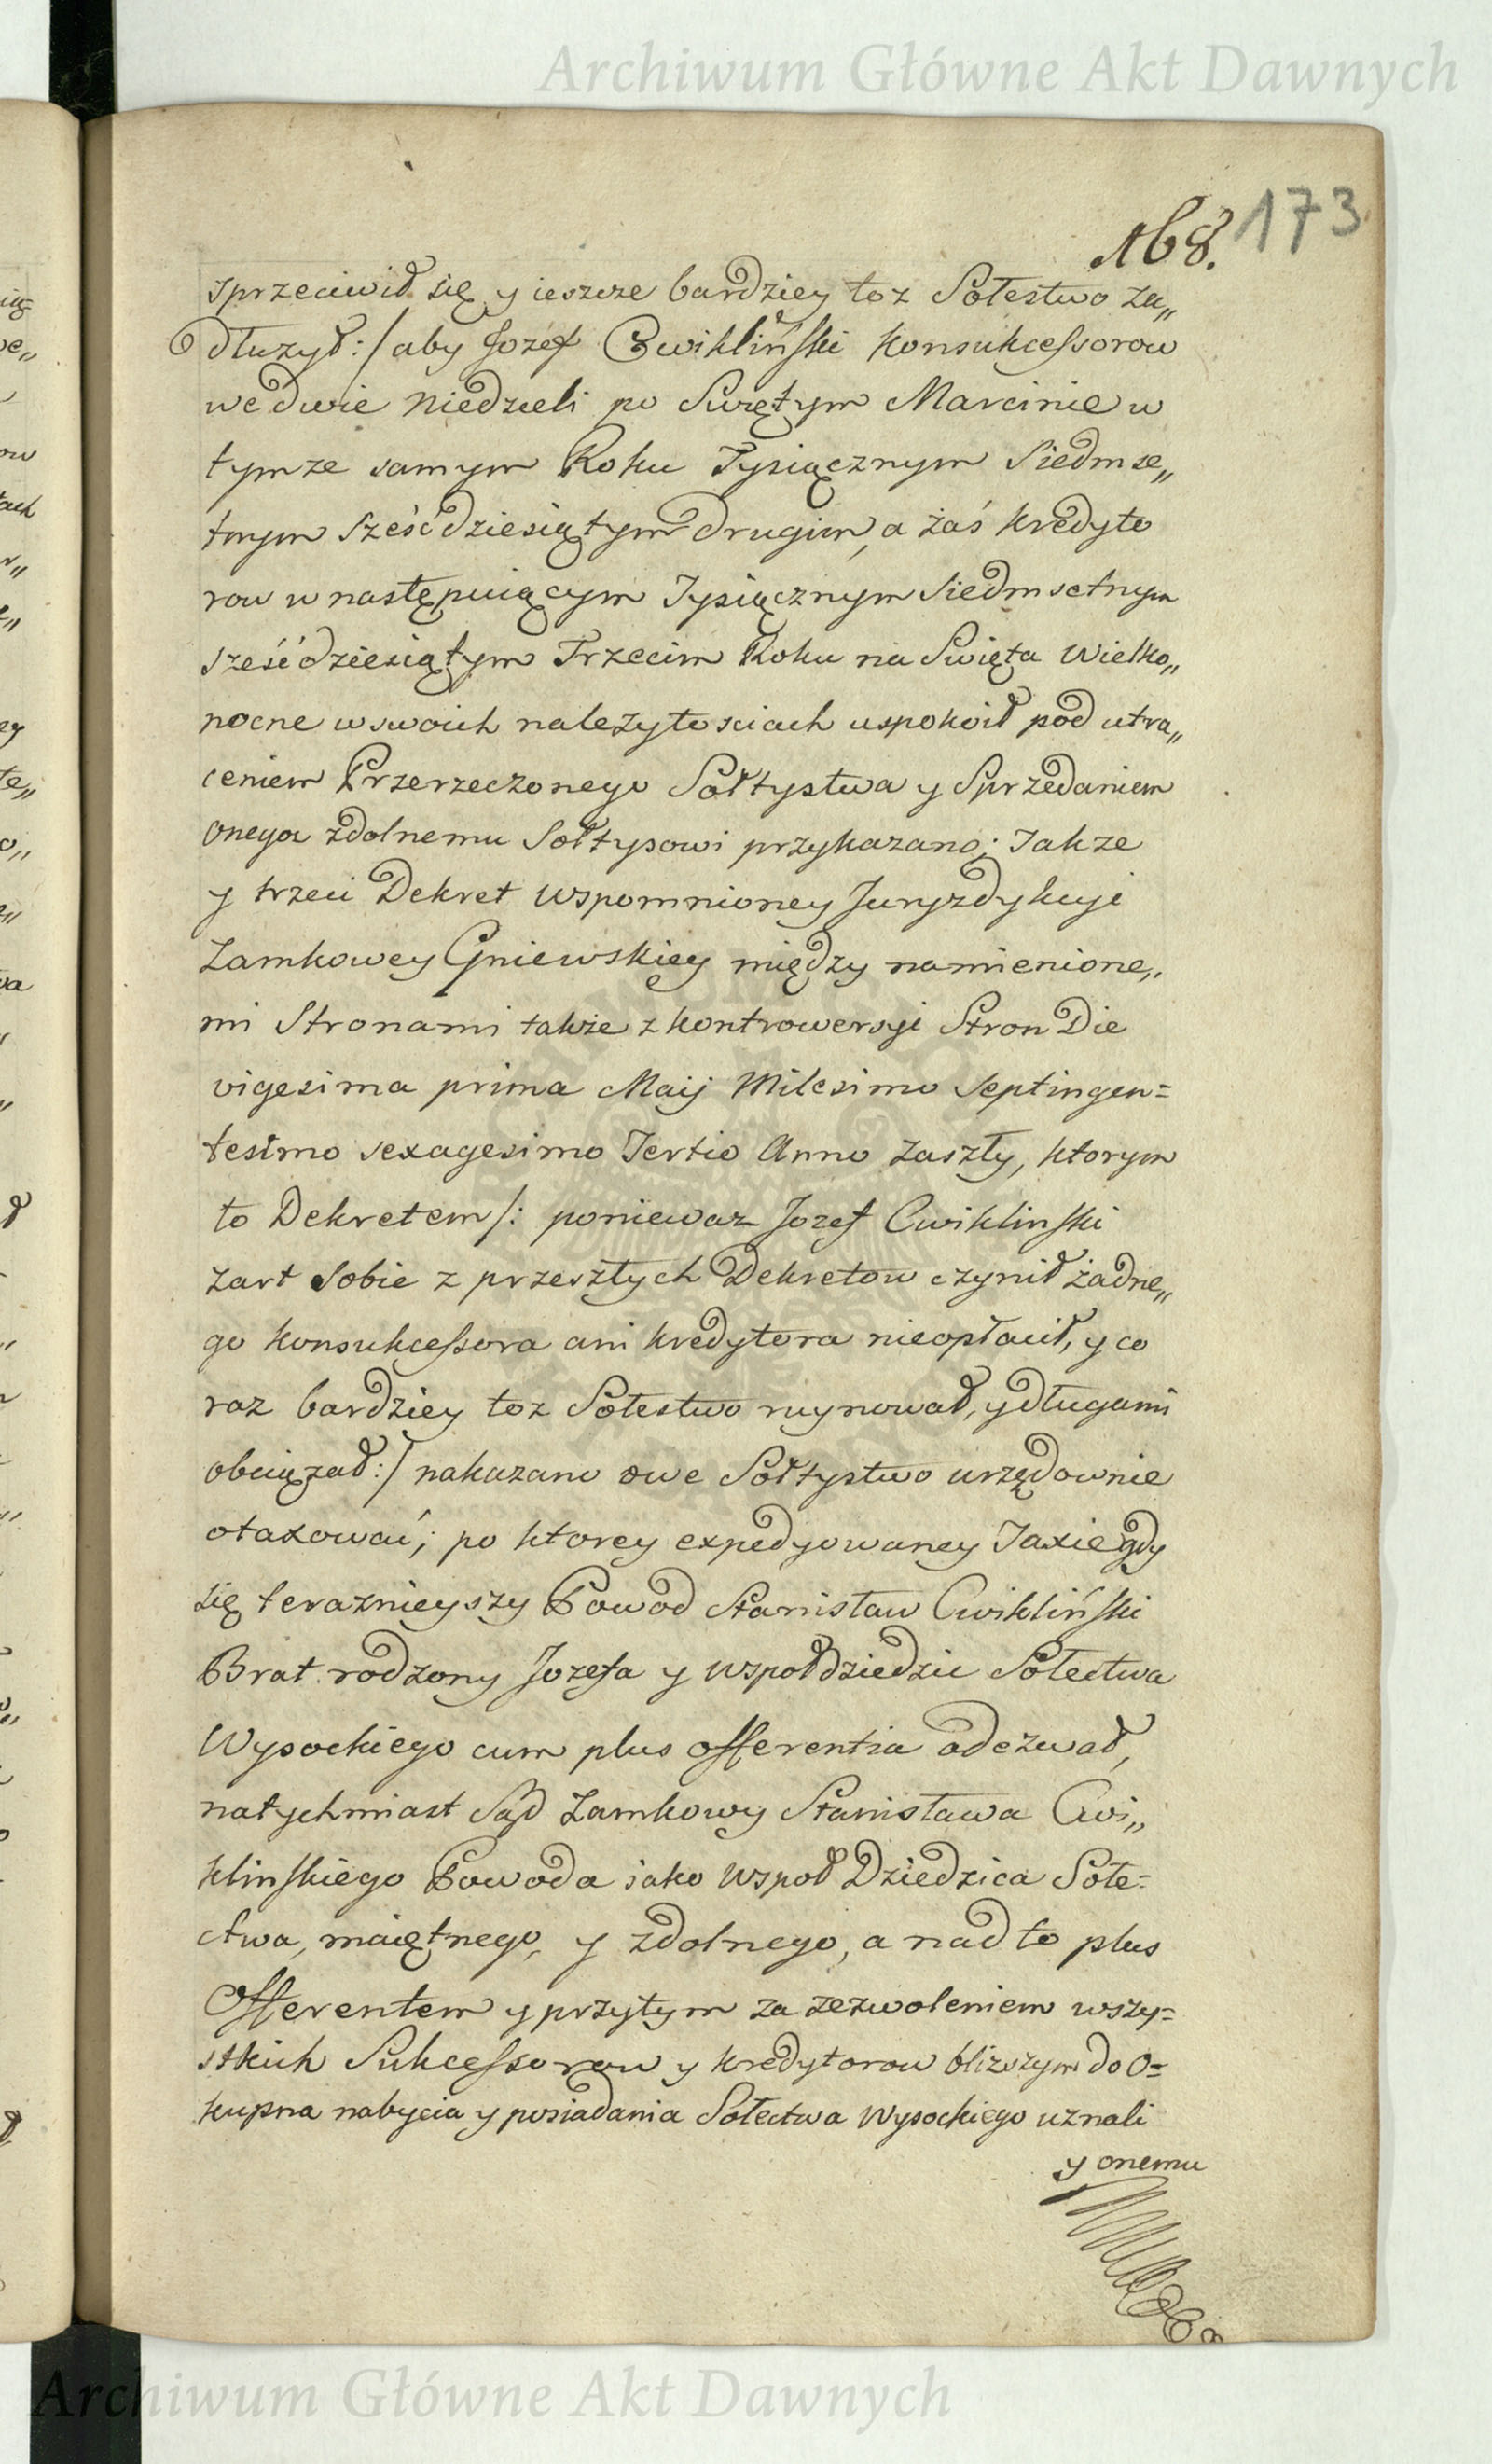 Archiwum Główne Akt Dawnych
168. 173
sprzeciwił się y ieszcze bardziey toz Sołestwo za„
dłuzył :/ aby Jozef Cwikliński Konsukcessorow
we dwie Niedzieli po Swiętym Marcinie w
tymze samym Roku Tysiącznym Siedmse„
tnym Sześćdziesiątym drugim, a żaś kredyto
row w następuiącym Tysiącznym Siedmsetnym
sześćdziesiątym Trzecim Roku na Swięta Wielko„
nocne w swoich należytosciach uspokoił pod utra„
ceniem Przerzeczonego Sołtystwa y Sprzedaniem
onego zdolnemu Sołtysowi przykazano; Takze
y trzeci Dekret wspomnioney Juryzdykcyi
Zamkowey Gniewskiey między namienione„
mi Stronami także z kontrowersyi Stron Die
vigesima prima Maij Milesimo Septingen=
tesimo sexagesimo Tertio Anno zaszły, ktorym
to Dekretem /: poniewaz Jozef Cwiklinski
zart Sobie z przeszłych Dekretow czynił żadne„
go Konsukcessora ani kredytora nieopłacił, y co
raz bardziey toz Sołestwo ruynował, y długami
obciązał :/ nakazano owe Sołtystwo urzędownie
otaxować; po ktorey expedyowaney Taxie gdy
się teraznieyszy Powod Stanisław Cwikliński
Brat rodzony Jozefa y wspołdziedzic Sołectwa
Wysockiego cum plus offerentia odezwał,
natychmiast Sąd Zamkowy Stanisława Cwi„
klinskiego Powoda iako wspoł Dziedzica Sołe=
ctwa, maiętnego, y zdolnego, a nad to plus
Offerentem y przytym za zezwoleniem wszy=
stkich Sukcessorow y kredytorow bliższym do o=
kupna nabycia y posiadania Sołectwa Wysockiego uznali
y onemu
Archiwum Główne Akt Dawnych